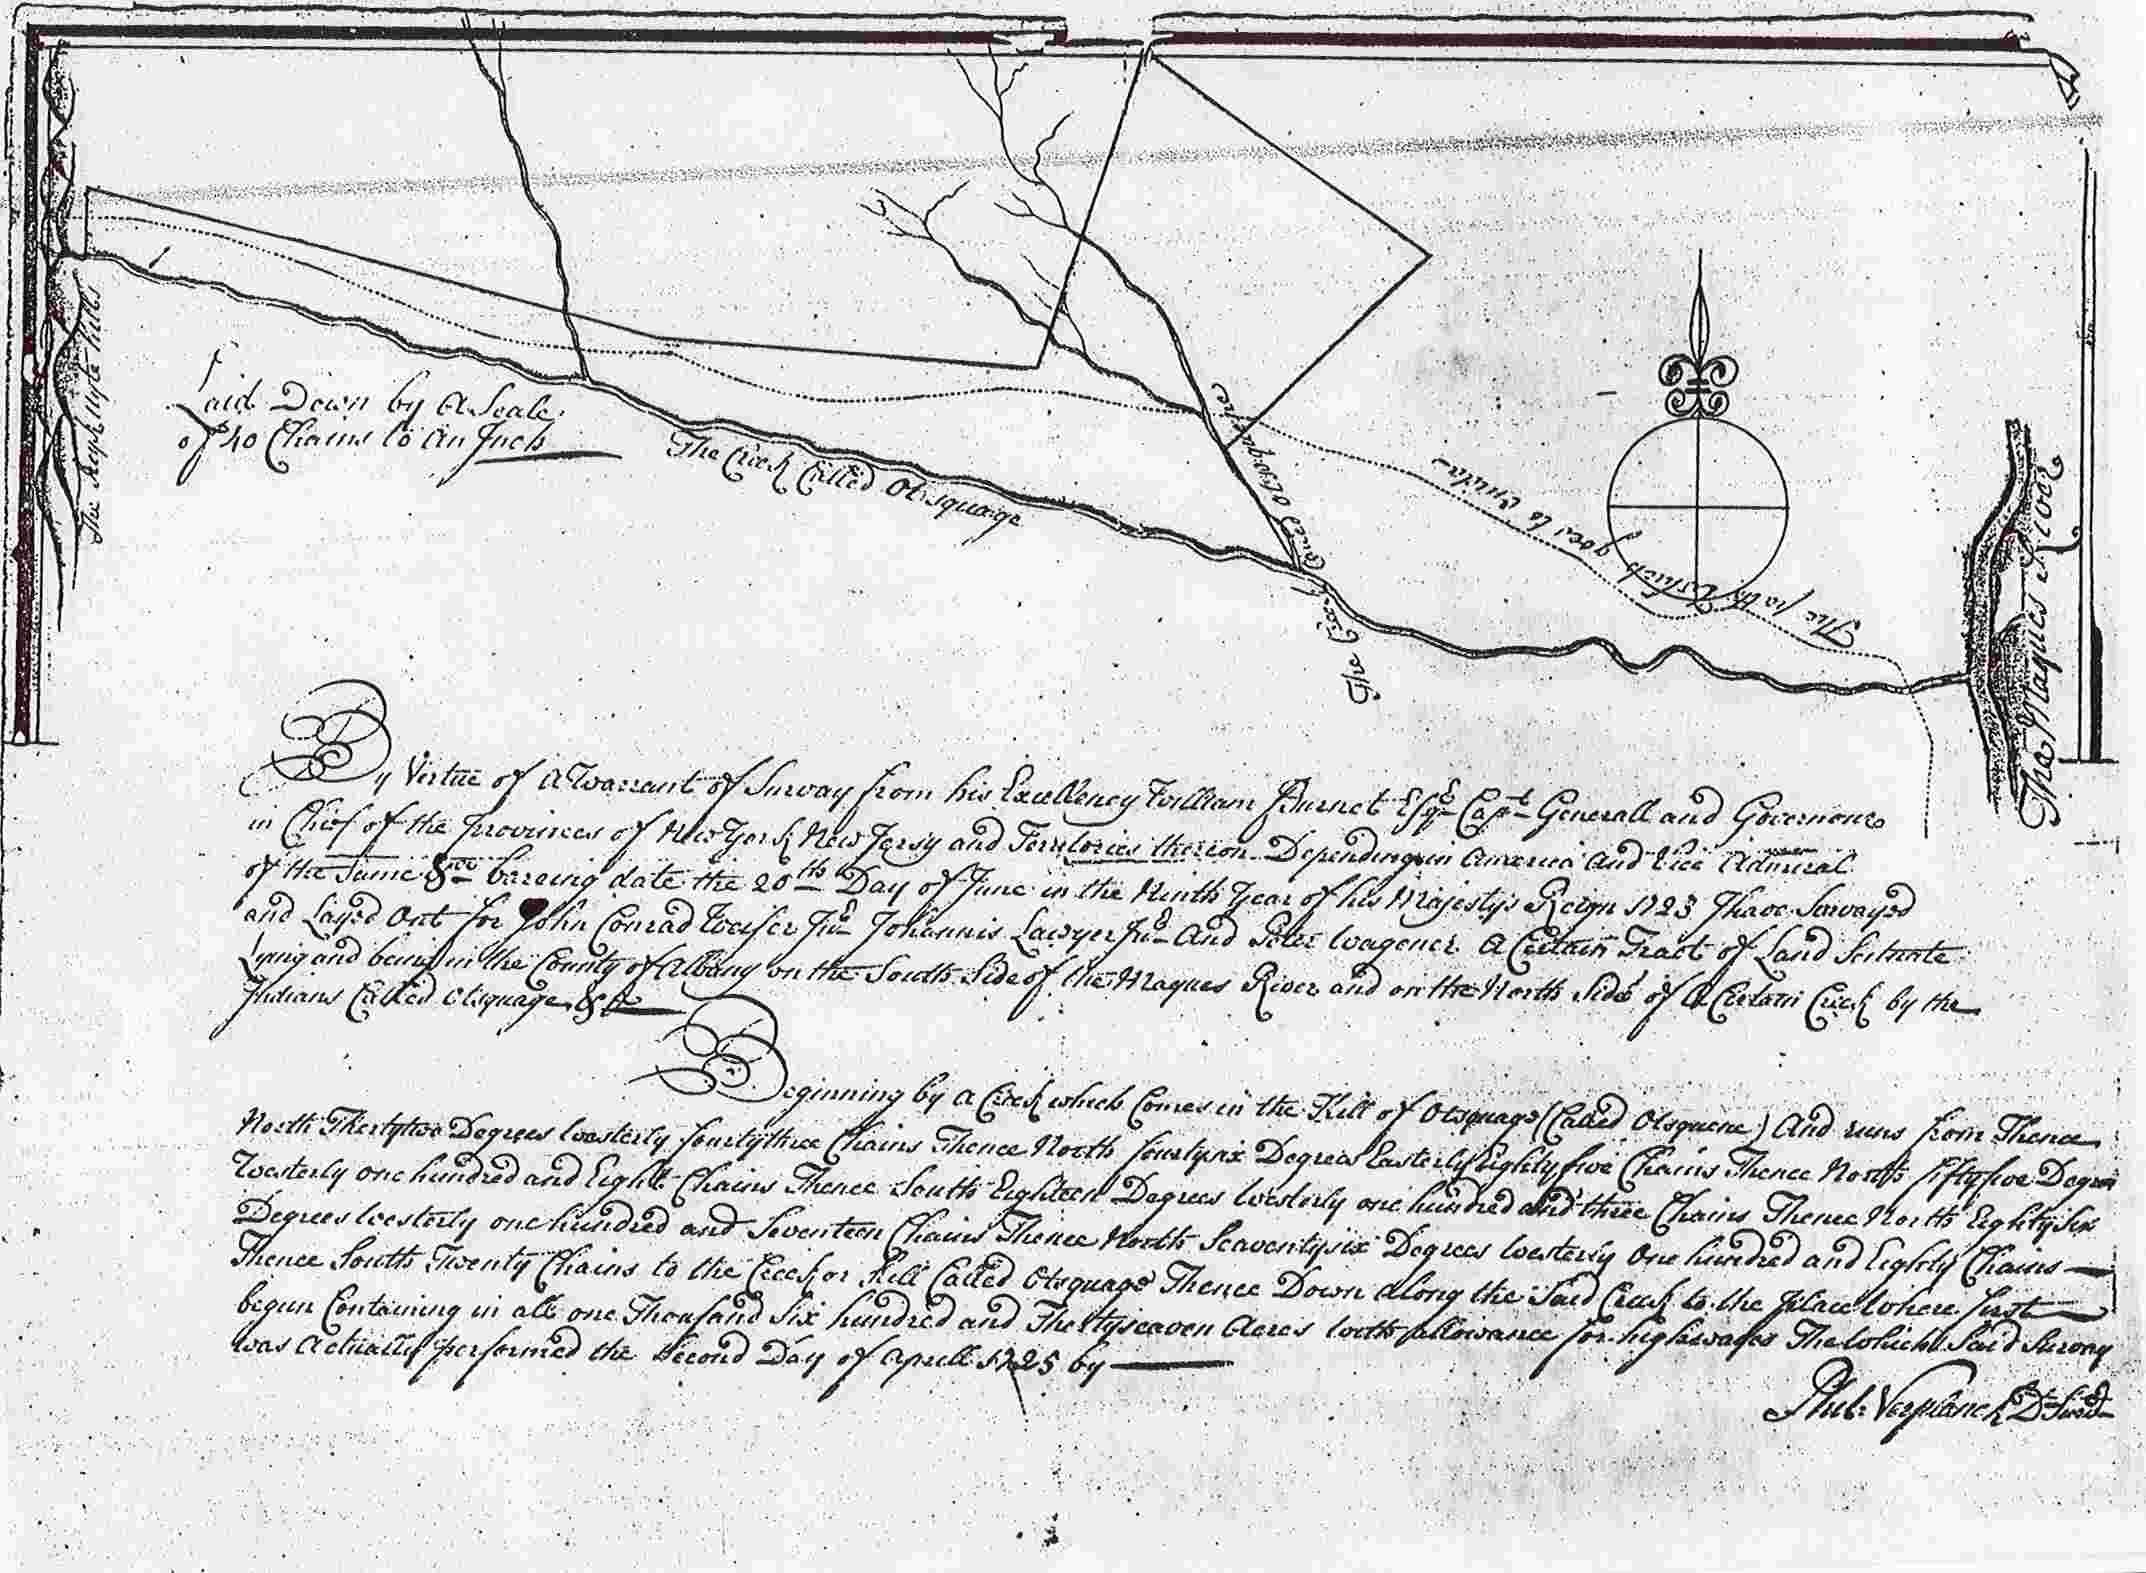 Laid Down by A Scale
of 40 Chains to An Inch
The Creek Called Otsquage
The Creek Called Otsquene
The path Which goes to
The Maques River
By Virtue of A Warrant of Survay from his Excellency William Burnet Esqr. Capt. Generall and Governour
in Chief of the Provinces of New York New Jersy and Territories thereon Depending in America And Vice Admiral
of the Same &ca bareing date the 20th Day of June in the Ninth Year of his Majestys Reign 1723 I have Survayed
and Layed Out for John Conrad Weiser Jur. Johannis Lawyer Jur. And Peter Wagener A Certain Tract of Land Scituate
Lying and being in the County of Albany on the South Side of the Maques River and on the North Side of A Certain Creek by the
Indians Called Otsquage &ca
Beginning by A Creek which Comes in the Kill of Otsquage (Called Otsquene) And runs from Thence
North Thertytwo Degrees Westerly fourtythree Chains Thence North fourtysix Degrees Easterly Eighty five Chains Thence North fiftyfive Degrees
Westerly one hundred and Eight Chains Thence South Eighteen Degrees Westerly one hundred and three Chains Thence North Eighty Six
Degrees Westerly one hundred and Seventeen Chains Thence North Seaventysix Degrees Westerly One hundred and Eighty Chains
Thence South Twenty Chains to the Creek or Kill Called Otsquage Thence Down along the Said Creek to the place Where first
begun Containing in all one Thousand Six hundred and Thertyseaven Acres with allowance for highwayes The Which Said Survay
was Actually performed the Second Day of Aprill 1725 by
Phil: Verplanck D: Surv: